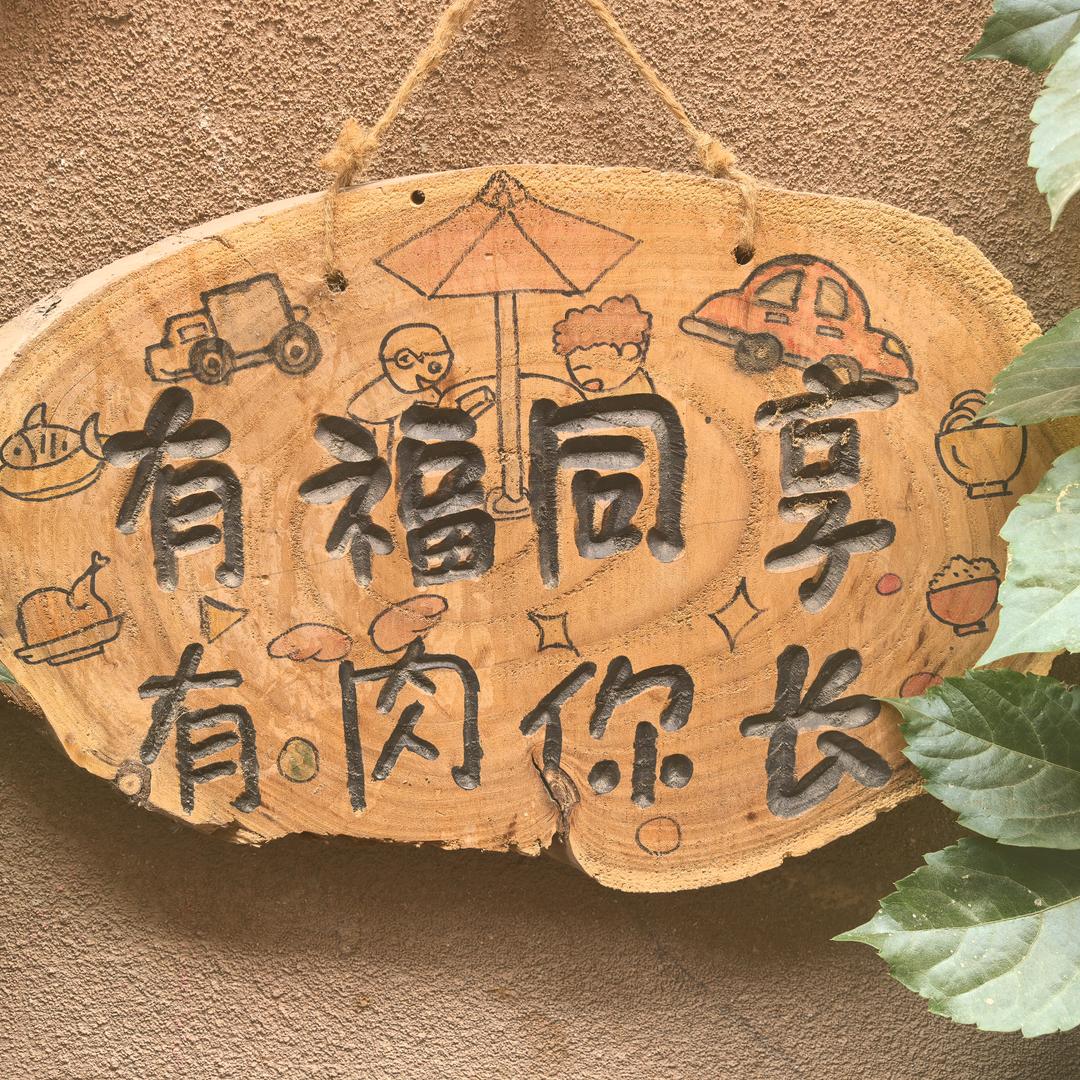 有福同享
有肉你长